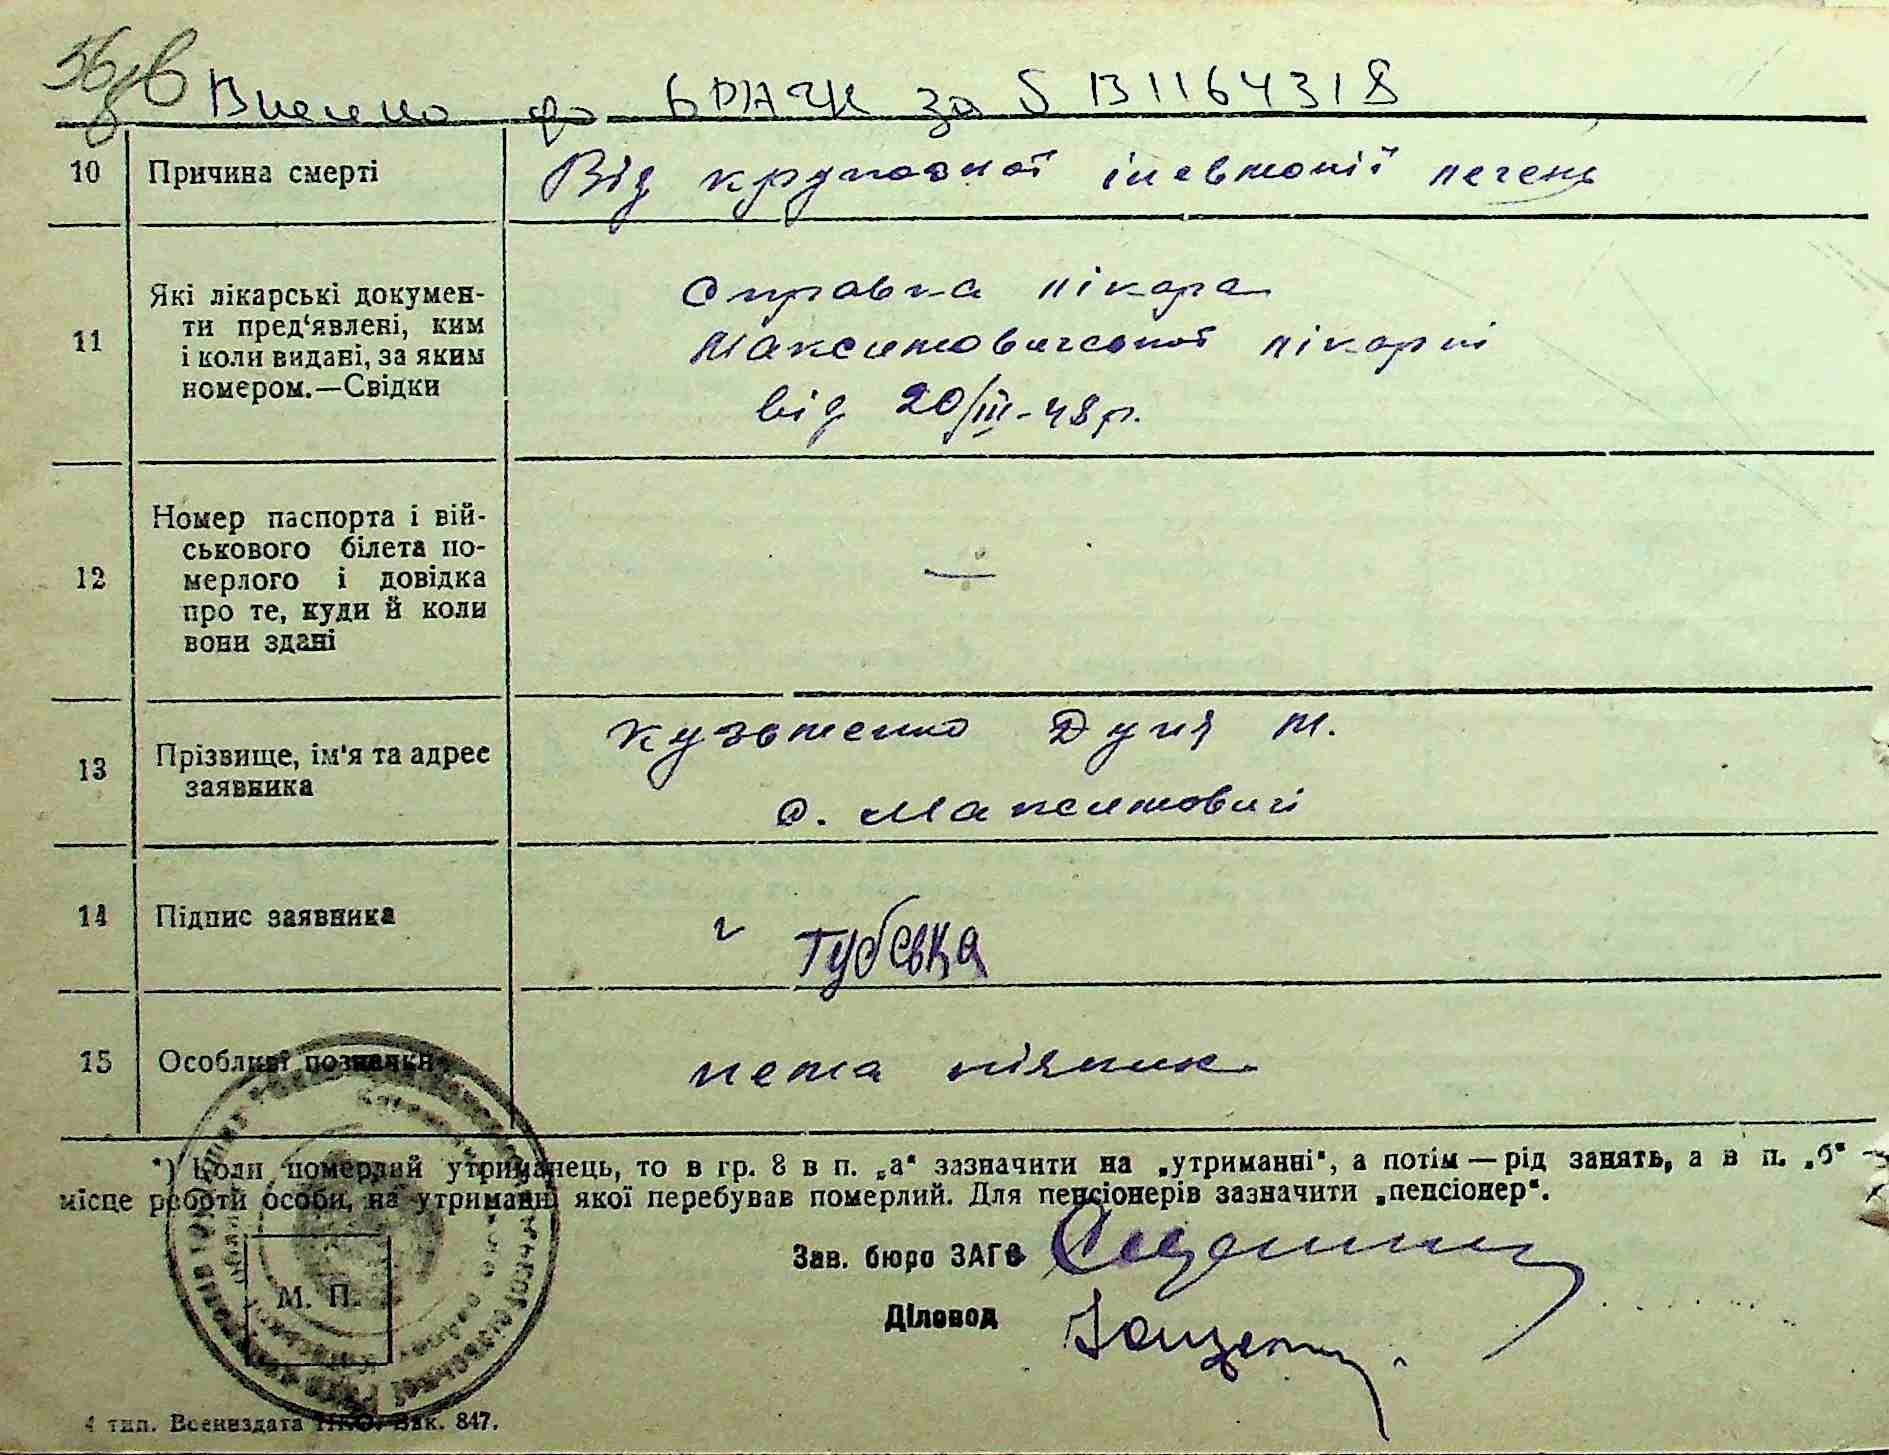 Внесено до ДРАЦС за S 131164318
10 Причина смерті Від крупозної пневмонії легень
11 Які лікарські докумен-
ти пред'явлені, ким
і коли видані, за яким
номером.—Свідки
Справка лікара
Максимовичської лікарні
від 20/III-48р.
12 Номер паспорта і вій-
ськового білета по-
мерлого і довідка
про те, куди й коли
вони здані
13 Прізвище, ім'я та адрес
заявника
Кузьменко Дуня М.
с. Максимовичі
14 Підпис заявника
15 Особливі позначки нема
*) Коли померлий утриманець, то в гр. 8 в п. „а“ зазначити на „утриманні“, а потім — рід занять, а в п. „б“ —
місце роботи особи, на утриманні якої перебував померлий. Для пенсіонерів зазначити „пенсіонер“.
Зав. бюро ЗАГС
Діловод
М. П.
4 тип. Воениздата НКО. Зак. 847.